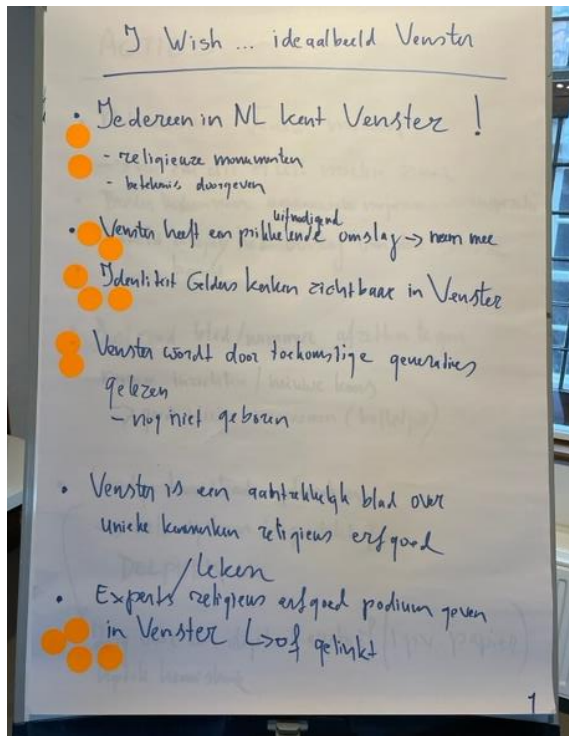 I Wish ... ideaalbeeld Venster
• Iedereen in NL kent Venster !
- religieuze monumenten
- betekenis doorgeven
uitnodigend
• Venster heeft een prikkelende omslag → neem mee
• Identiteit Gelders kerken zichtbaar in Venster
• Venster wordt door toekomstige generaties
gelezen
- nog niet geboren
• Venster is een aantrekkelijk blad over
unieke kenmerken religieus erfgoed
/leken
• Experts religieus erfgoed podium geven
in Venster ↳ of gelinkt
1